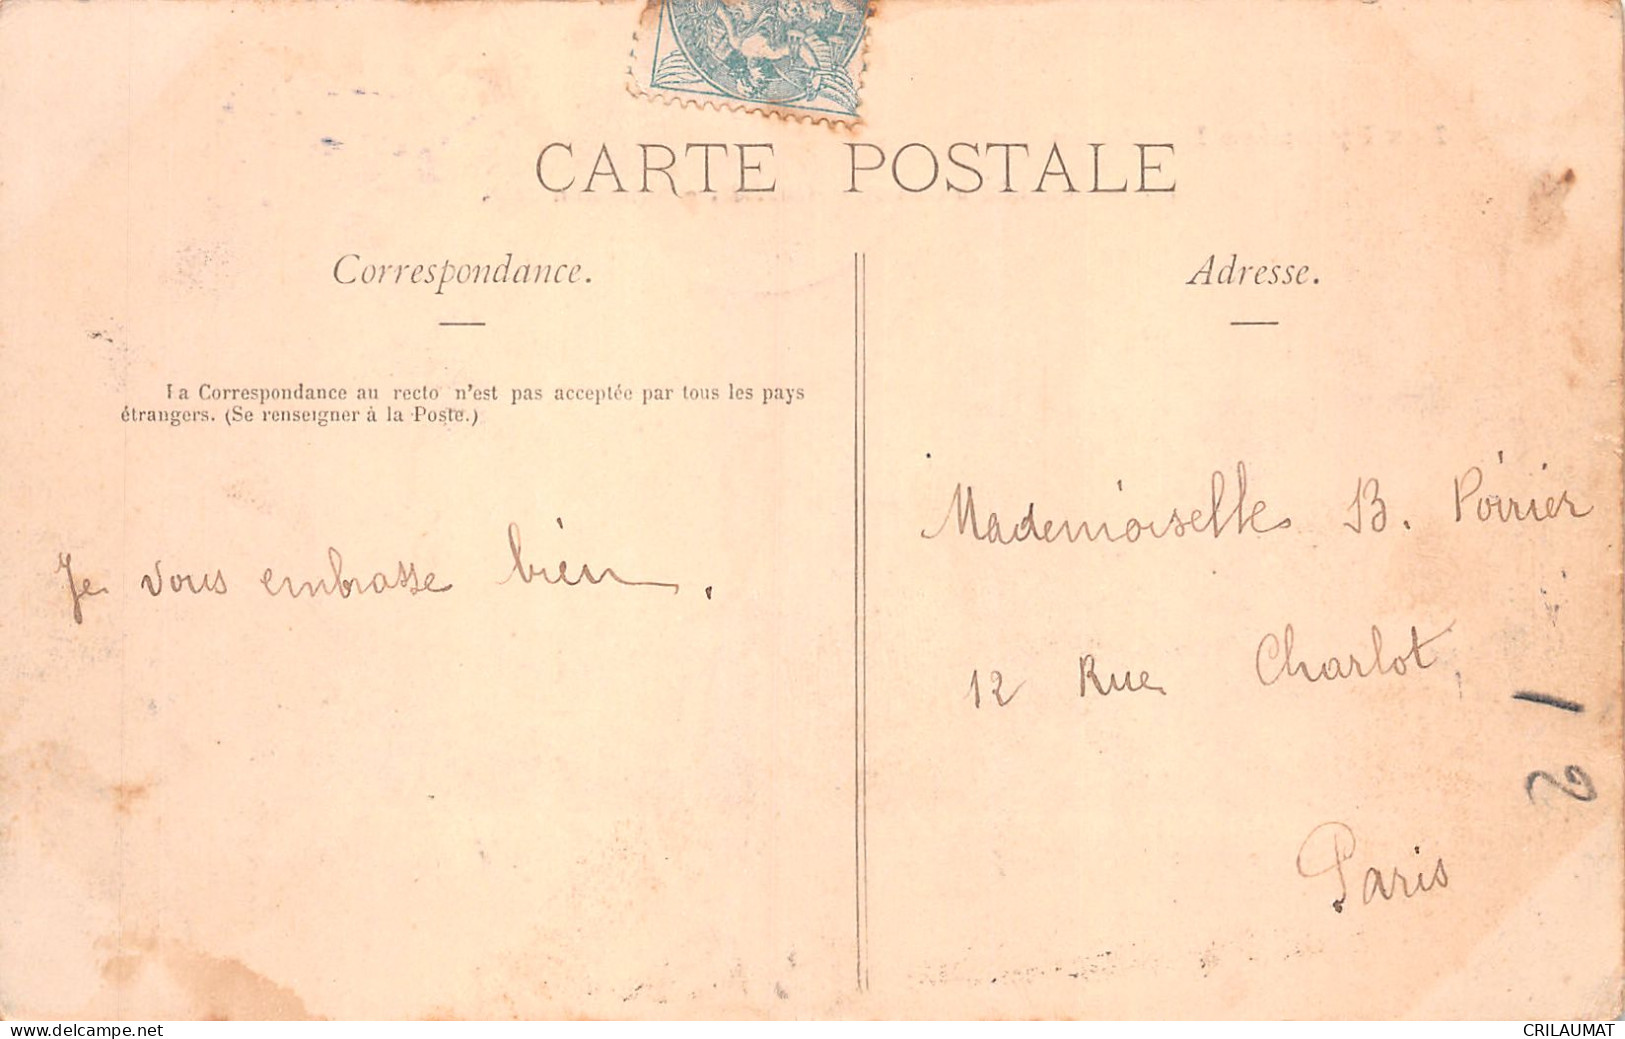 CARTE POSTALE
Correspondance.
La Correspondance au recto n'est pas acceptée par tous les pays
étrangers. (Se renseigner à la Poste.)
Je vous embrasse bien.
Adresse.
Mademoiselle B. Poirier
12 Rue Charlot
Paris
12
www.delcampe.net
CRILAUMAT